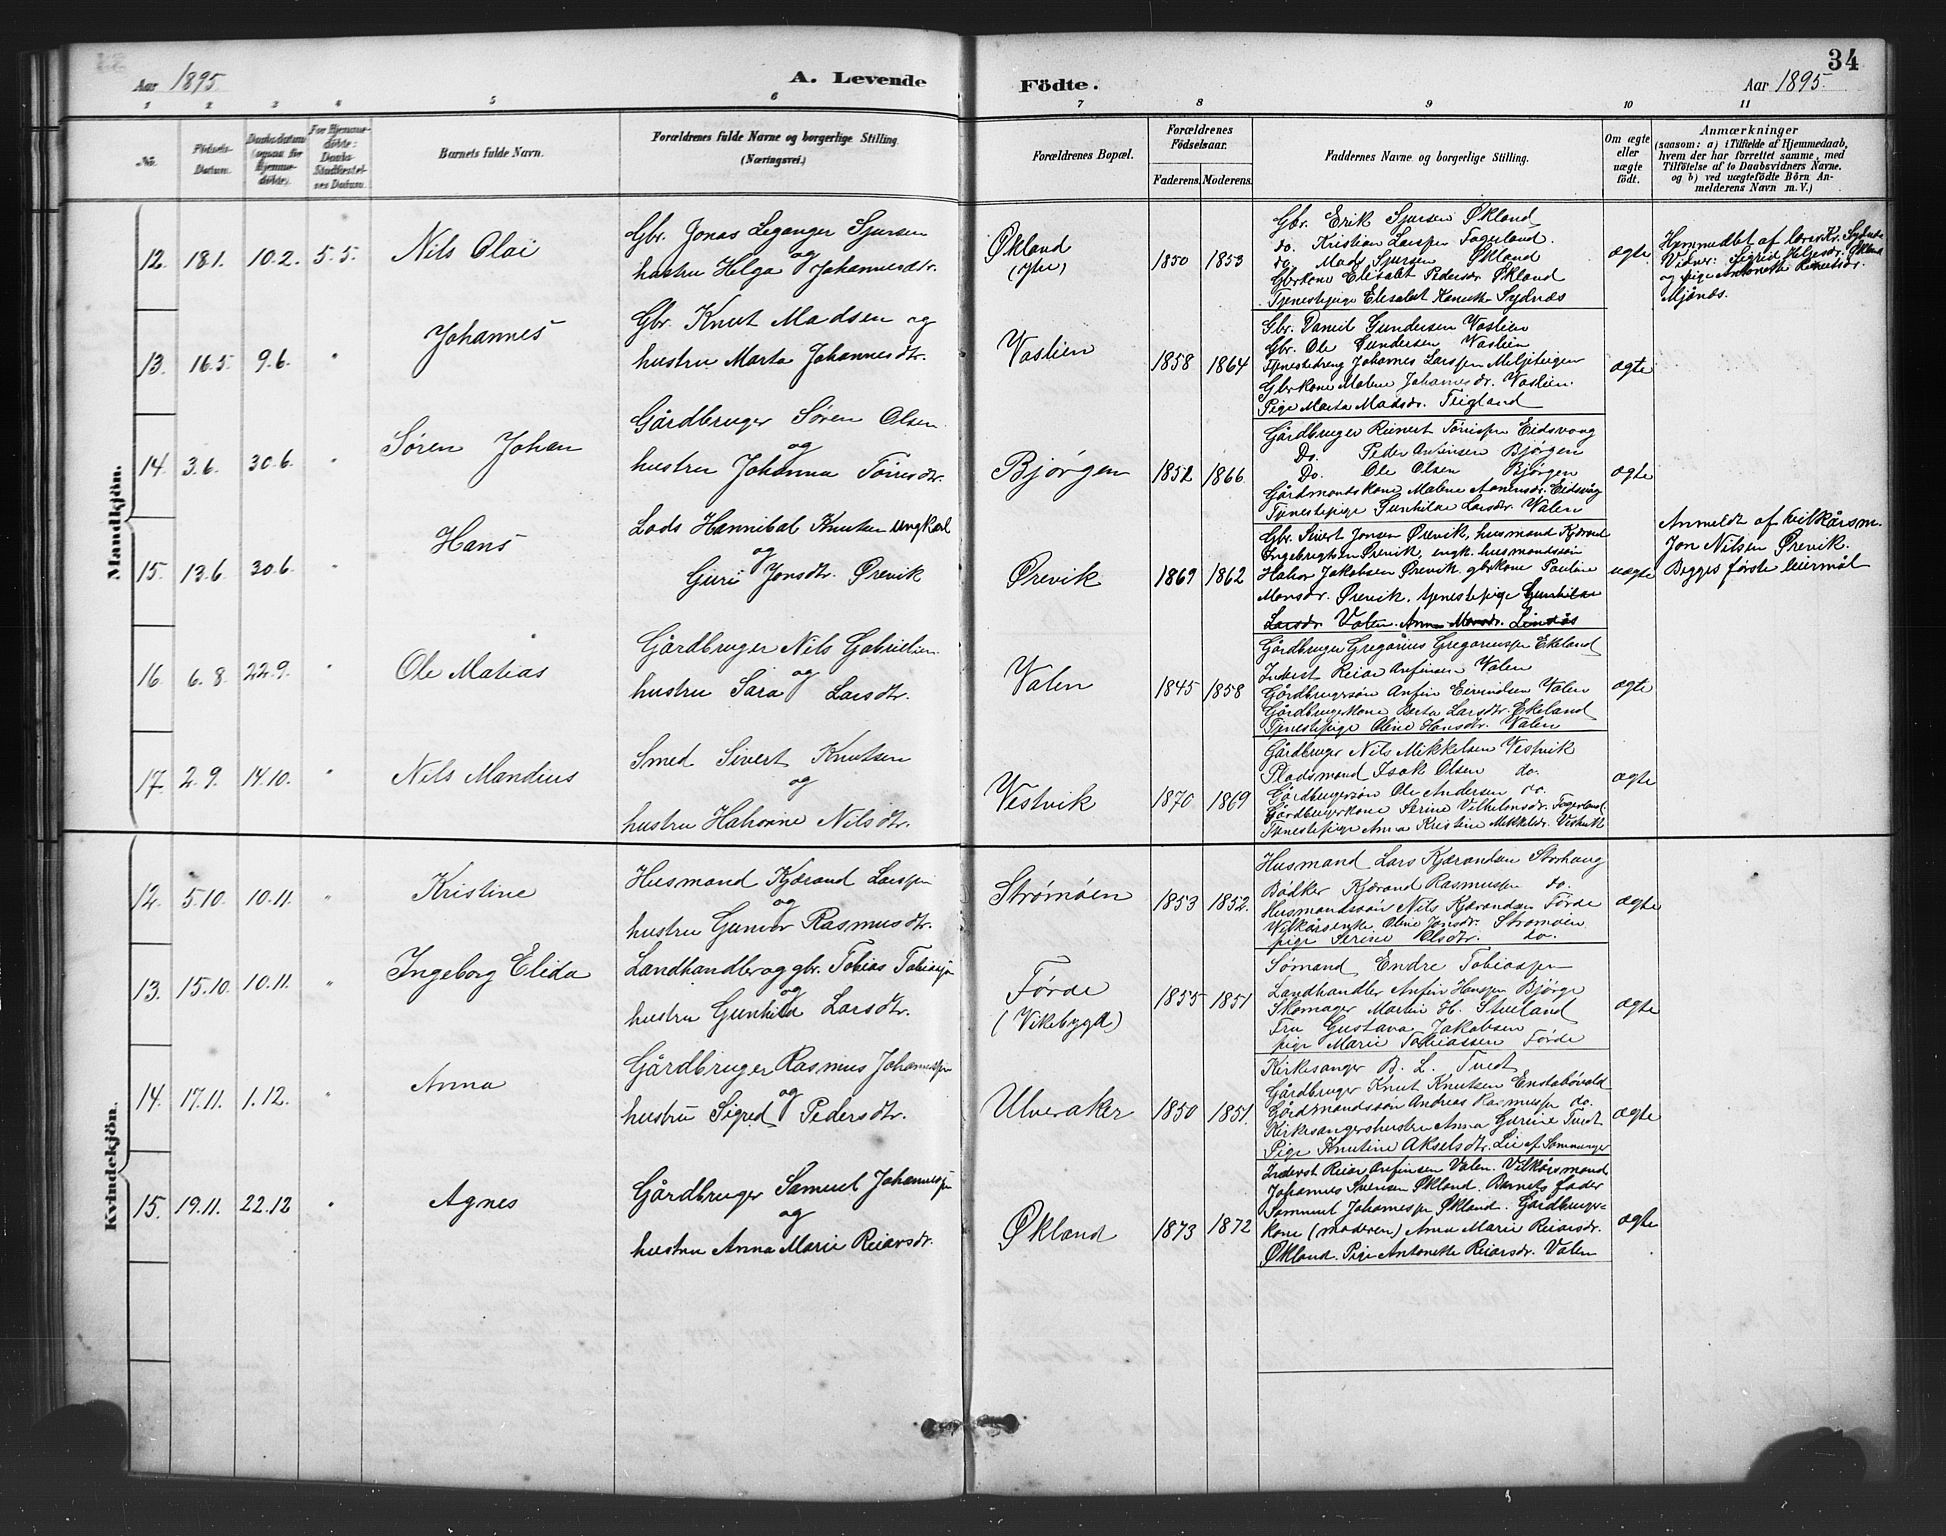 34
Aar 1895
A. Levende
Födte.
Aar 1895.
1 2 3 4 5 6 7 8 9 10 11
No.
Födsels-Datum.
Daabsdatum (ogsaa for Hjemmedöbte).
For Hjemmedöbte: Daabs Stadfæstelses Datum.
Barnets fulde Navn.
Forældrenes fulde Navne og borgerlige Stilling
(Næringsvei.)
Forældrenes Bopæl.
Forældrenes Födselsaar.
Faderens. Moderens.
Faddernes Navne og borgerlige Stilling.
Om ægte eller uægte födt.
Anmærkninger
(saasom: a) i Tilfælde af Hjemmedaab,
hvem der har forrettet samme, med
Tilföielse af to Daabsvidners Navne,
og b) ved uægtefödte Börn An-
melderens Navn m. V.)
Mandkjön.
12. 18.1. 10.2. 5.5. Nils Olai
Gbr. Jonas Leganger Sjursen
og
hustru Helga Johannesdtr.
Økland
(Ytre)
1850 1853
Gbr. Erik Sjursen Økland
do. Kristian Larssen Fageland.
do. Mads Sjursen Økland
Gbrkone Elisabet Pedersdr. Økland
Tjenestepige Elisabet Sydnæs
ægte
Hjemmedbt af lærer Kr. Sydnes
Vidner: Sigrid Økland
og pige Antonette
Mjånes.
13. 16.5. 9.6. " Johannes
Gbr. Knut Madsen og
hustru Marta Johannesdtr.
Vaslien
1858 1864
Gbr. Daniel Gundersen Vaslien
Gbr. Ole Gundersen Vaslien
Tjenestedreng Johannes Larssen Meljeteigen
Gbrkone Malene Johannesdr. Vaslien.
Pige Marta Madsdr. Teigland
ægte
14. 3.6. 30.6. " Søren Johan
Gårdbruger Søren Olsen
og
hustru Johanna Tørrisdtr.
Bjørgen
1852 1866
Gårdbruger Reinert Tørrissen Eidsvaag
Do. Peder Anfinsen Bjørgen
Do. Ole Olsen Bjørgen
Gårdmandskone Malene Eidsvåg
Tjenestepige Gunhilda Larsdr. Valen
ægte
15. 13.6. 30.6. " Hans
Lods Hannibal Knutsen ungkarl
og
Guri Jonsdtr. Ørevik
Ørevik
1869 1862
Gbr. Sivert Jonsen Ørevik, husmand Kjærand
Ingebrigtsen Ørevik, ungk. husmandssøn
Halvor Jakobsen Ørevik. gbrkone Pauline
Monsdr. Ørevik. tjenestepige Gunhilda
Larsdr. Valen. Anna Monsdr. Lindås
uægte
Anmeldt af vilkårsm.
Jon Nilsen Ørevik.
Begges første leiermål
16. 6.8. 22.9. " Ole Matias
Gårdbruger Nils Gabrielsen
og
hustru Sara Larsdtr.
Valen
1845 1858
Gårdbruger Gregorius Gregoriussen Ekeland
Inderst Reiar Anfinsen Valen
Gårdbrugersøn Anfin Eivindsen Valen
Gårdbrugerkone Berta Larsdtr. Ekeland
Tjenestepige Oline Hansdtr. Valen
ægte
17. 2.9. 14.10. " Nils Mandius
Smed Sivert Knutsen
og
hustru Halvorine Nilsdtr.
Vestvik
1870 1869
Gårdbruger Nils Mikkelsen Vestvik
Pladsmand Isak Olsen do.
Gårdbrugersøn Ole Andersen do.
Gårdbrugerkone Serine Vilhelmsdr. Fagerland
Tjenestepige Anna Kristine Mikkelsdr. Vestvik
ægte
Kvindekjön.
12. 5.10. 10.11. " Kristine
Husmand Kjærand Larssen
og
hustru Gunvor Rasmusdtr.
Strømøen
1853 1852.
Husmand Lars Kjærandsen Storhaug
Bødker Kjærand Rasmussen do.
Husmandssøn Nils Kjærandsen Førde
Vilkårsenke Oline Jonsdr. Strømøen
pige Serine Olsdtr. do.
ægte
13. 15.10. 10.11. " Ingeborg Elida
Landhandler og gbr. Tobias Tobiassen
og
hustru Gunhilda Larsdtr.
Førde
(Vikebygd)
1855 1851
Sømand Endre Tobiassen
Landhandler Anfin Hanssen Bjørge
Skomager Martin H. Stueland
Fru Gustava Jakobsen
pige Marie Tobiassen Førde
ægte
14. 17.11. 1.12. " Anna
Gårdbruger Rasmus Johannessen
og
hustru Sigred Pedersdtr.
Ulveraker
1850 1851.
Kirkesanger B. L. Tvedt
Gårdbruger Knut Knutsen Enstabøvold
Gårdmandssøn Andreas Rasmussen do.
Kirkesangershustru Anna Gurine Tvedt
Pige Knutine Akselsdtr. Lie af
ægte
15. 19.11. 22.12 " Agnes
Gårdbruger Samuel Johannessen
og
hustru Anna Marie Reiarsdr.
Økland
1873 1872
Inderst Reiar Anfinsen Valen. Vilkårsmand
Johannes Svensen Økland. Barnets fader
Sammuel Johannessen Økland. Gårdbruger-
kone (moderen) Anna Marie Reiarsdr.
Økland. Pige Antonette Reiarsdr. Valen
ægte